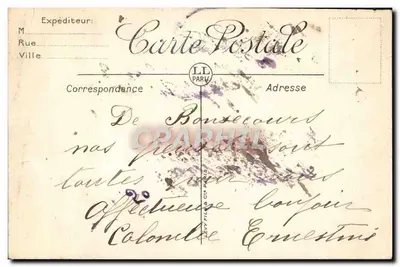 Expéditeur:
M
Rue
Ville
Carte Postale
LL
PARIS
Correspondance
Adresse
De Bonsecours
nos pensées sont
toutes pour vous
affectueux bonjour
Colombe Ernestine